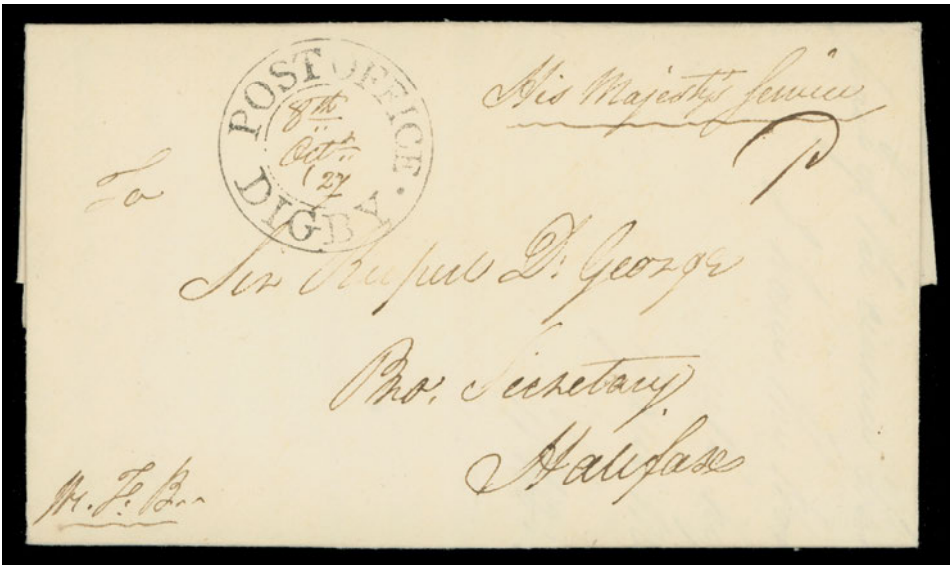 POST OFFICE.
DIGBY
8th
Octr..
27
His Majesty's Service
P
To
Sir Rupert D. George
Pro. Secretary
Halifax
W. F. B..